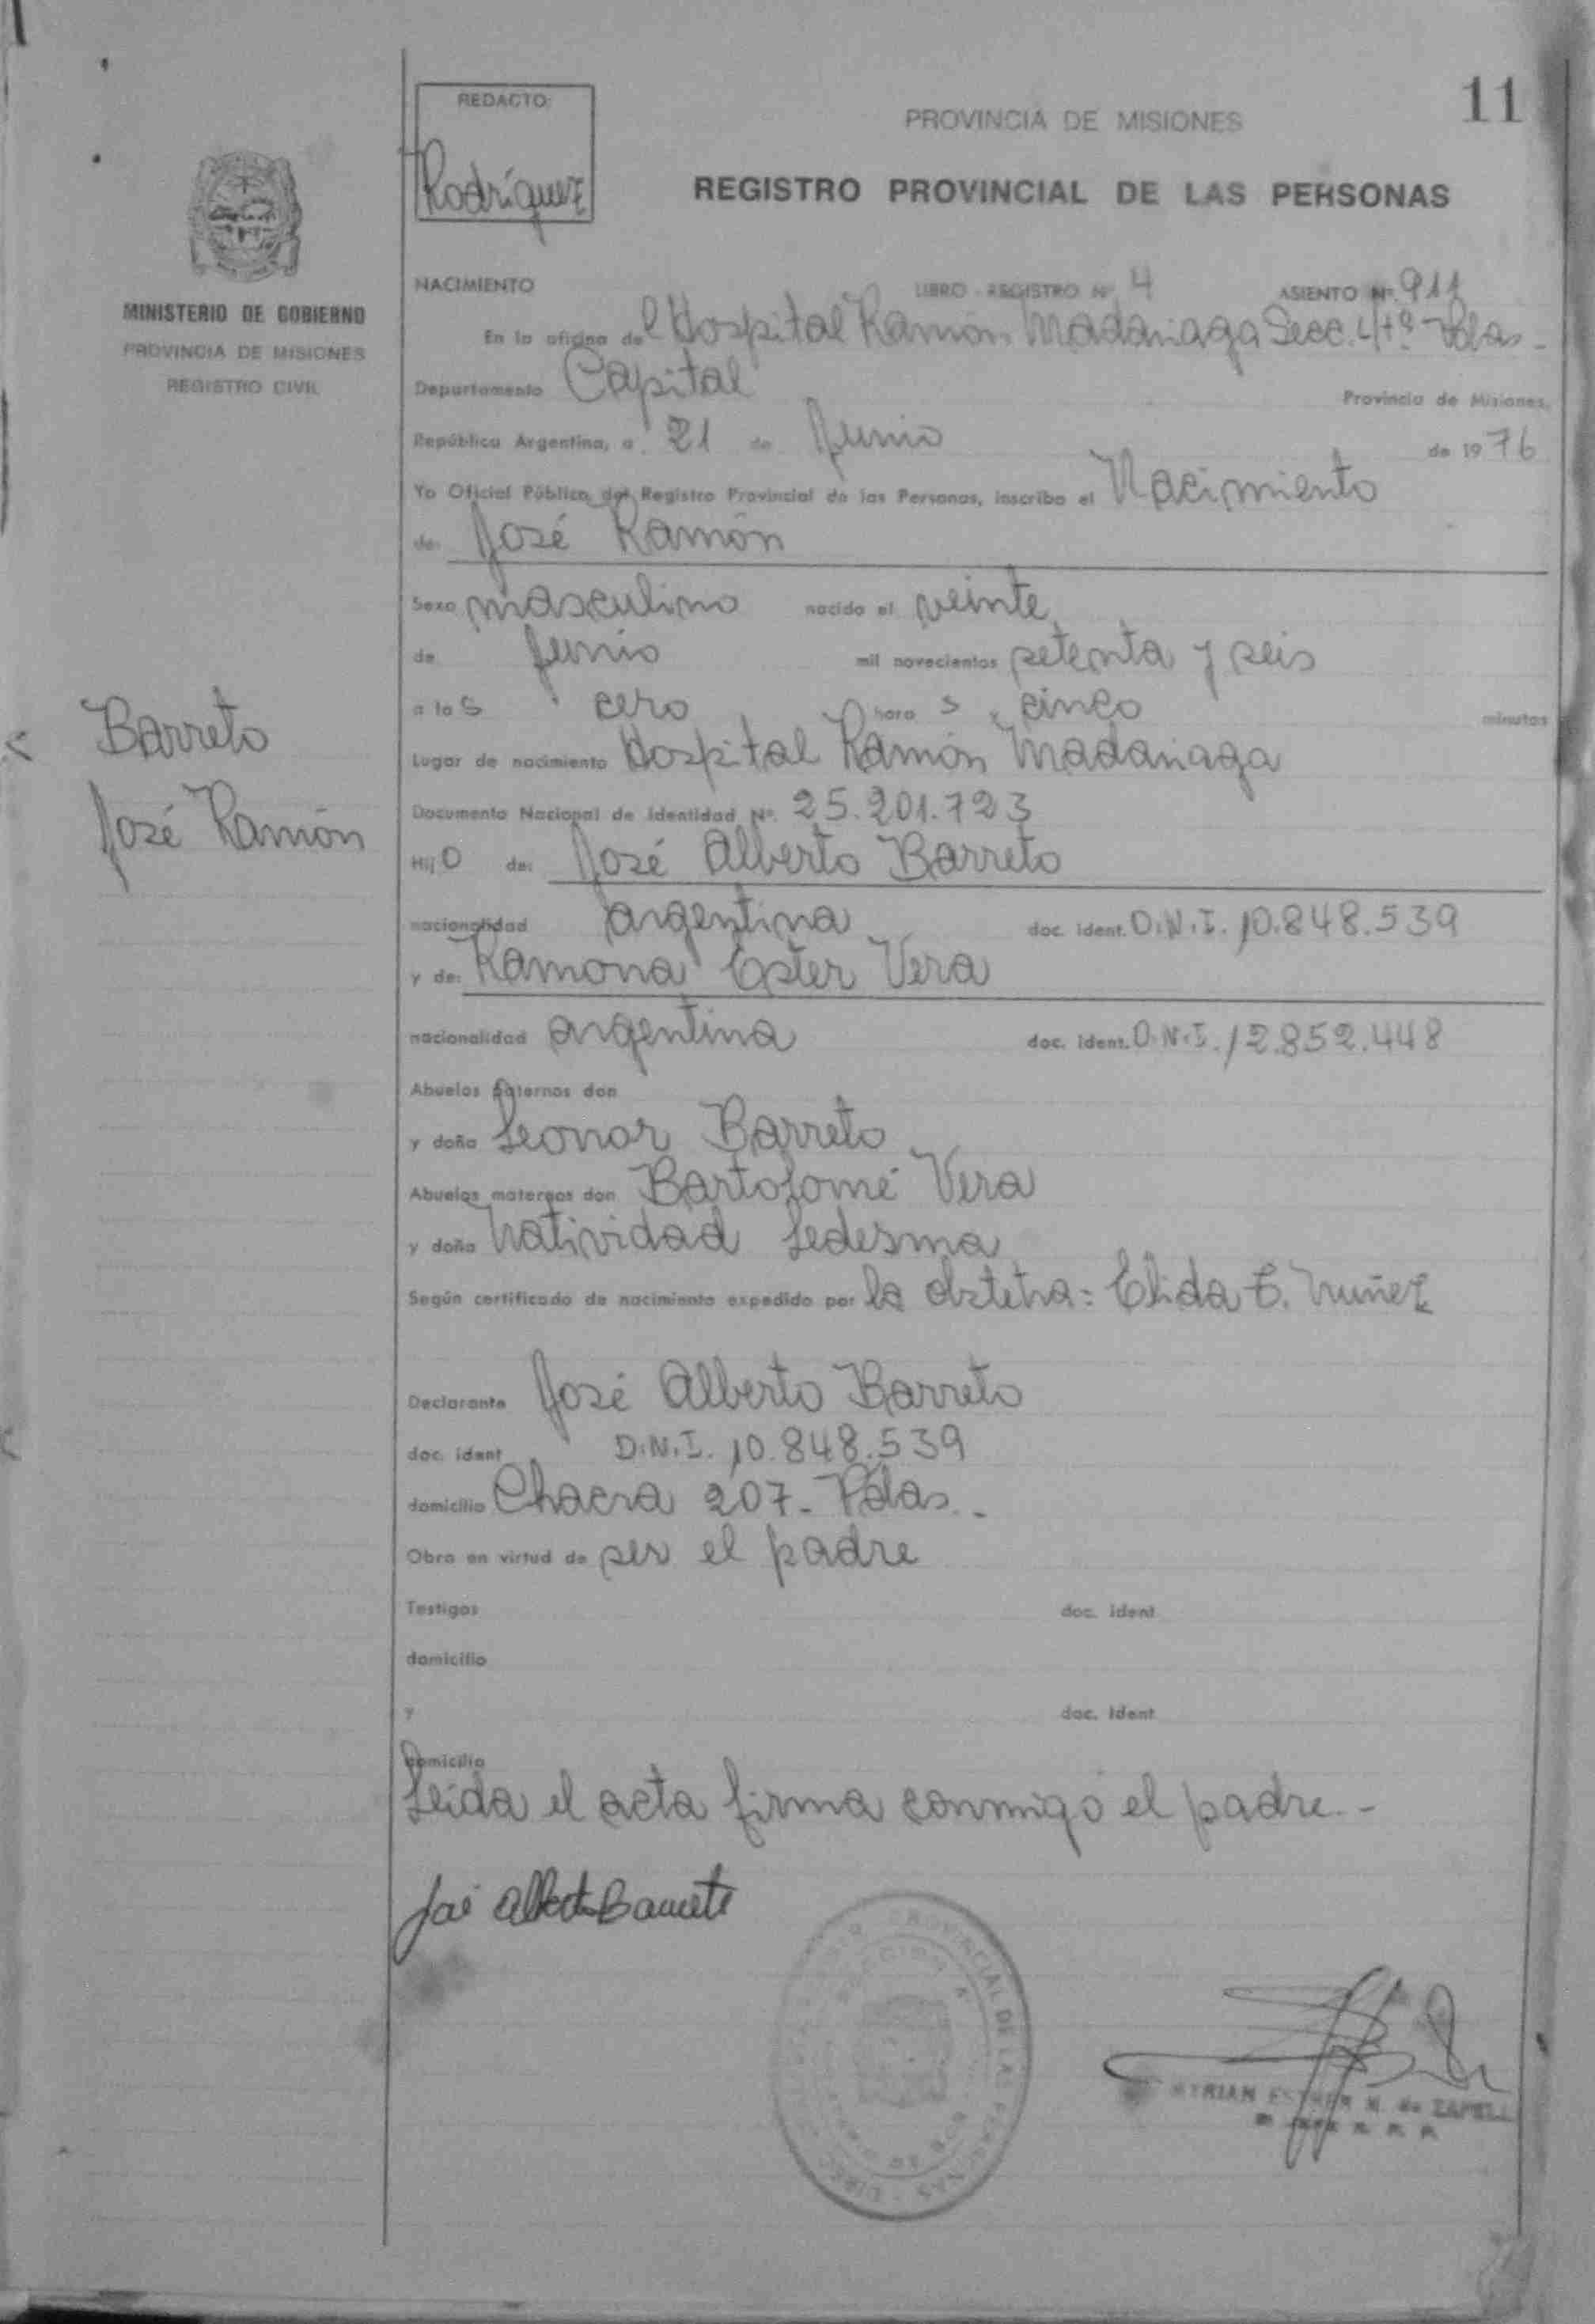 11
REDACTO:
Rodríguez
PROVINCIA DE MISIONES
REGISTRO PROVINCIAL DE LAS PERSONAS
MINISTERIO DE GOBIERNO
PROVINCIA DE MISIONES
REGISTRO CIVIL
NACIMIENTO LIBRO - REGISTRO Nº 4 ASIENTO Nº 911
En la oficina del Hospital Ramón Madariaga Secc. 4tª Pdas.-
Departamento Capital Provincia de Misiones,
República Argentina, a 21 de Junio de 1976
Yo Oficial Público del Registro Provincial de las Personas, inscribo el Nacimiento
de: José Ramón
Sexo masculino nacido el veinte
de junio mil novecientos setenta y seis
a las cero horas y cinco minutos
Lugar de nacimiento Hospital Ramón Madariaga
Documento Nacional de Identidad Nº. 25.201.723
Barreto
José Ramón
Hijo de: José Alberto Barreto
nacionalidad argentina doc. ident. D.N.I. 10.848.539
y de: Ramona Ester Vera
nacionalidad argentina doc. ident. D.N.I. 12.852.448
Abuelos paternos don
y doña Leonor Barreto
Abuelos maternos don Bartolomé Vera
y doña Natividad Ledesma
Según certificado de nacimiento expedido por la obstetra: Elida E. Nuñez
Declarante José Alberto Barreto
doc. ident D.N.I. 10.848.539
domicilio Chacra 207- Pdas.-
Obra en virtud de ser el padre
Testigos doc. ident
domicilio
y doc. ident
domicilio
Leída el acta firma conmigo el padre.-
José Alberto Barreto
PROVINCIAL DE LAS PERSONAS
MYRIAN ESTHER N. de